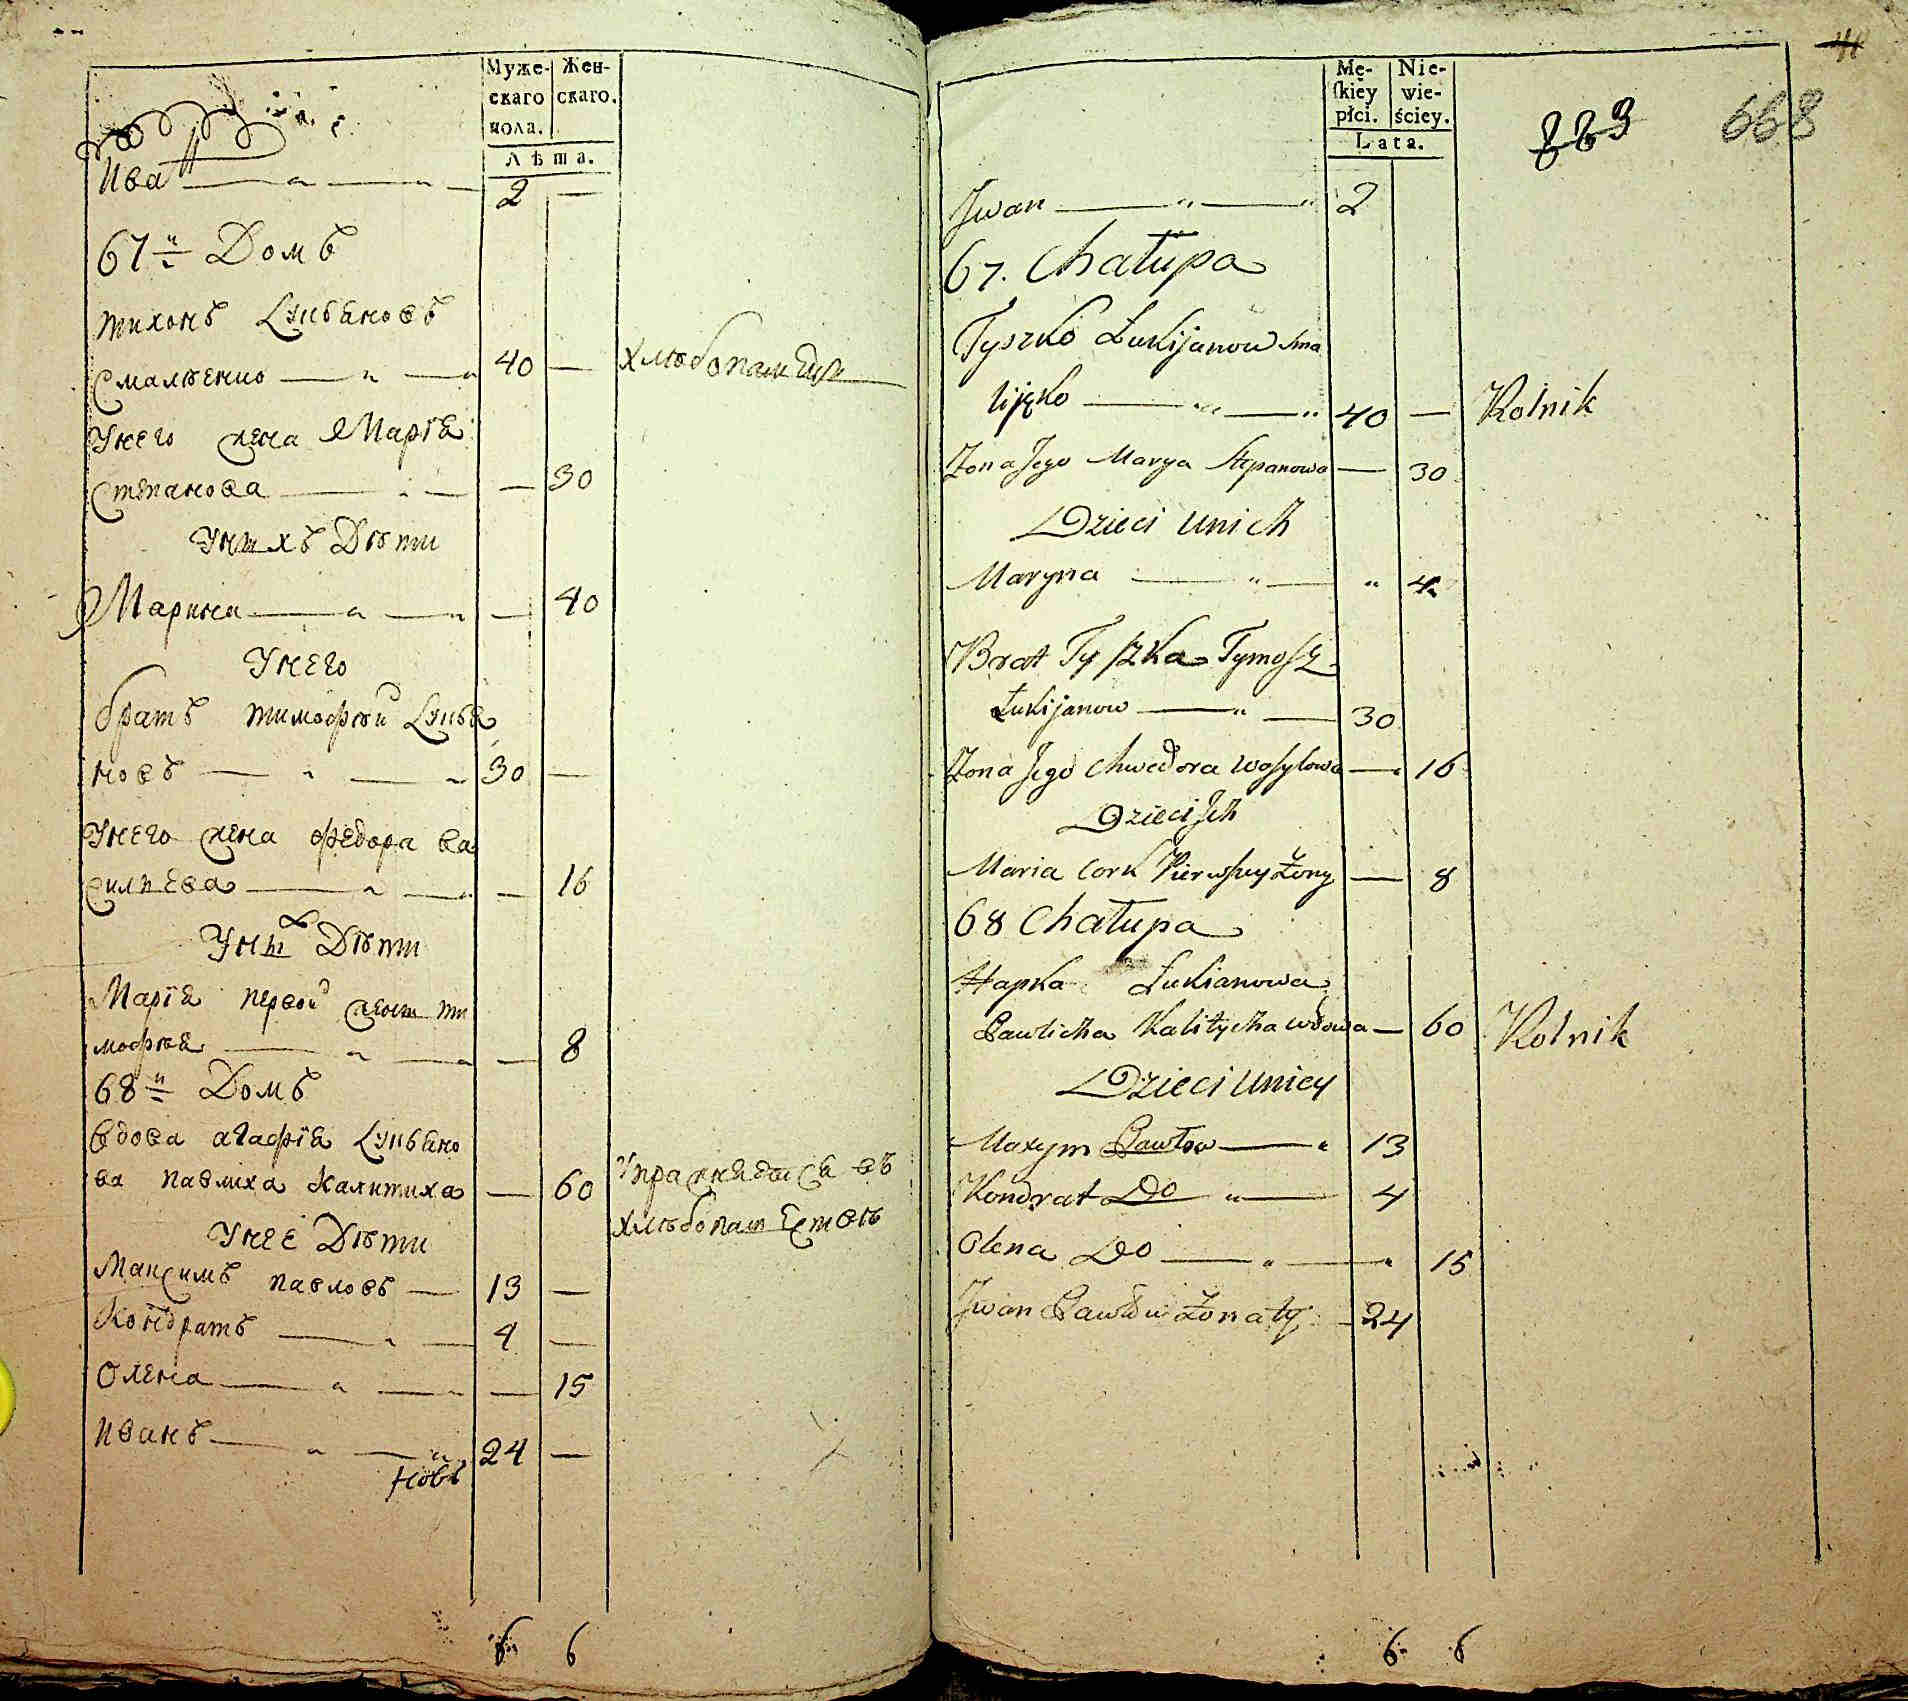 Муже- Жен-
скаго скаго.
пола.
Лѣта.
Иванъ 2 —
67й Домъ
тихонъ Лукьяновъ
Смалѣенко 40 — хлѣбопашецъ
Унего жена Марїя
Степанова — 30
Унихъ Дѣти
Марина — 40
Унего
братъ тимофѣй Лукья
новъ 30 —
Унего жена федора ва
силъева — 16
Унихъ Дѣти
Марїя первой жены ти
мофѣя — 8
68й Домъ
вдова агафїя Лукьяно
ва павлиха калитиха — 60 Упражняется въ
хлѣбопашествѣ
Унее Дѣти
Максимъ павловъ — 13 —
Кондратъ 4 —
Олена — 15
Иванъ 24 —
6 6
Mę- Nie-
skiey wie-
płci. ściey.
Lata.
668
Jwan 2
67. Chałupa
Tyszko Łukijanow Sma
lijęko 40 — Rolnik
Zona Jego Marya Stepanowa — 30
Dzieci unich
Maryna " 4
Brat Tyszka Tymosz
Łukijanow 30
Zona Jego Chwedora Wasylowa — 16
Dzieci Jch
Maria Cork Pierwszey Żony — 8
68 Chałupa
Hapka Łukianowa
Pawlicha Kalitycha wdowa — 60 Rolnik
Dzieci uniey
Maxym Pawłow 13
Kondrat Do 4
Olena Do 15
Jwan Pawłow Żonaty 24
6 6